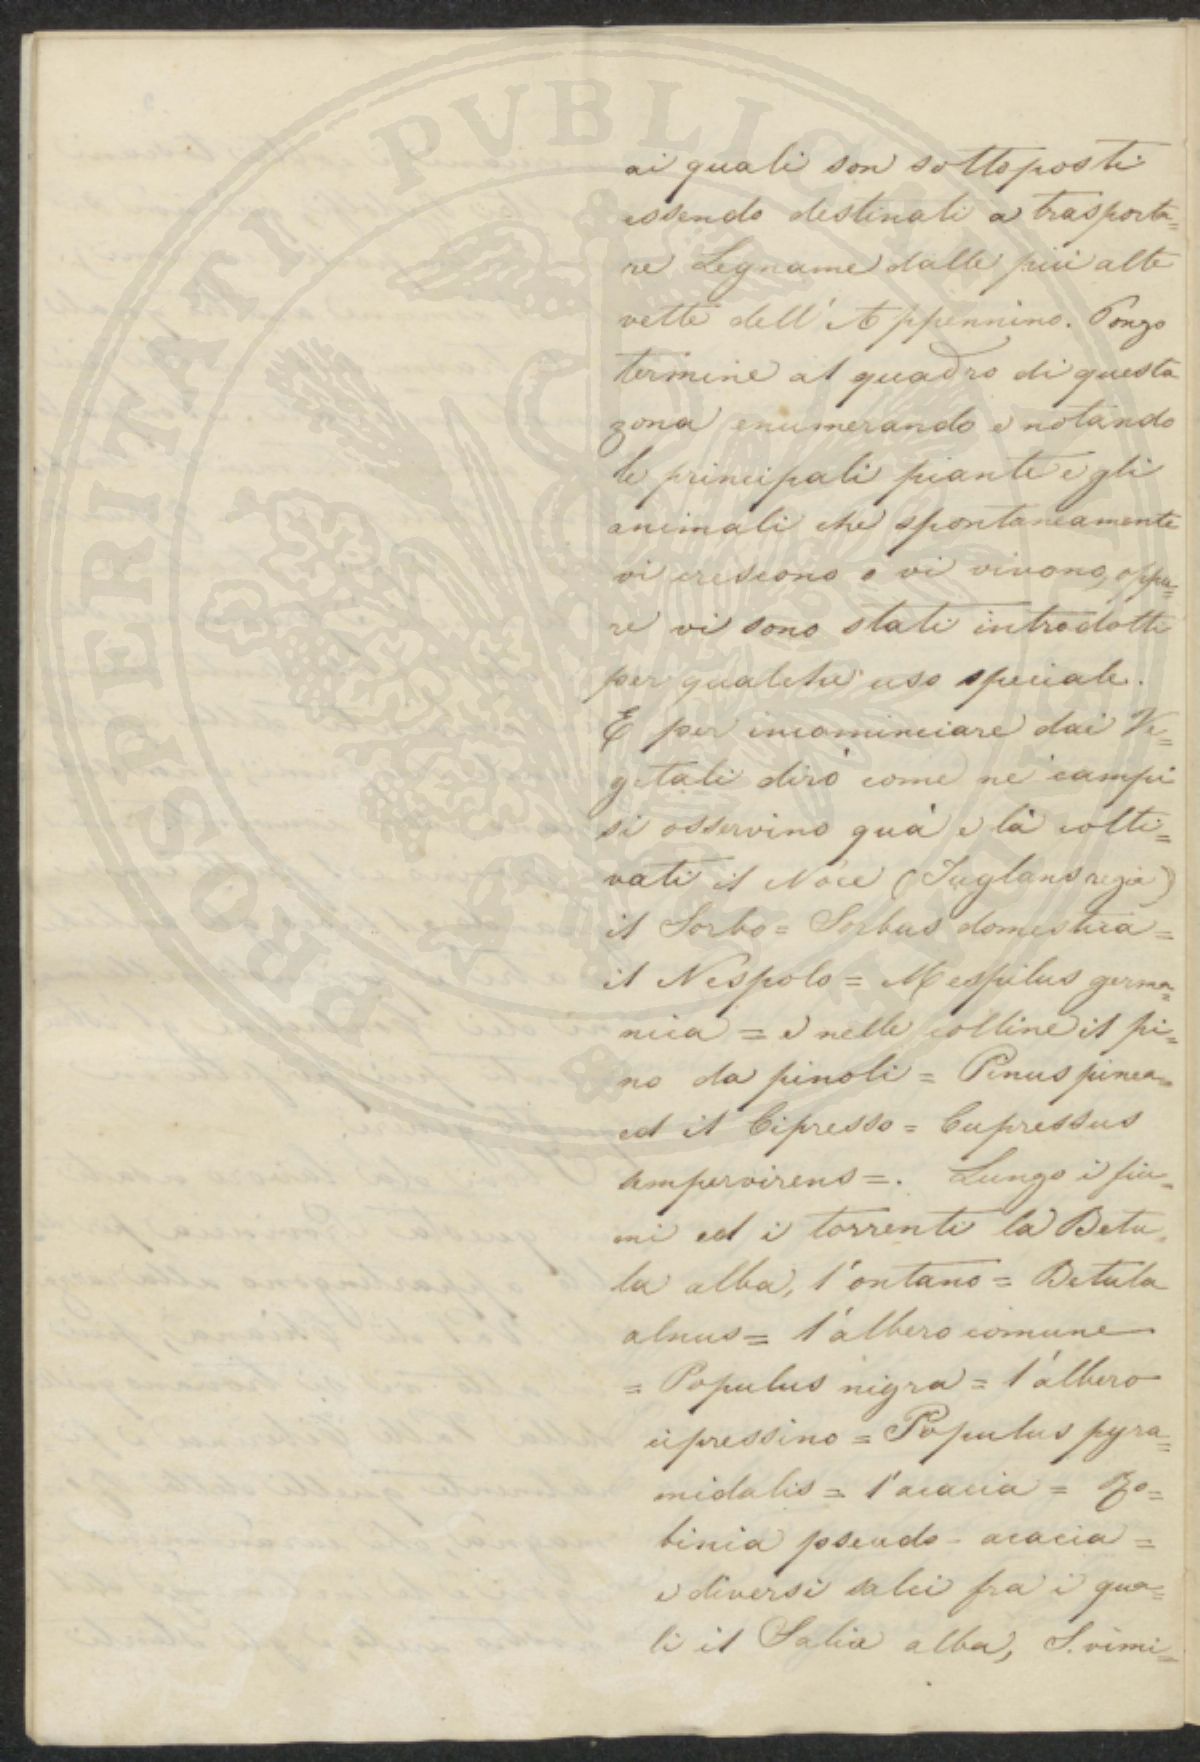 PROSPERITATI PUBLICAE
ai quali son sottoposti
essendo destinati a trasporta=
re Legname dalle più alte
vette dell'Appennino. Pongo
termine al quadro di questa
zona enumerando e notando
le principali piante e gli
animali che spontaneamente
vi crescono o vi vivono, oppu=
re vi sono stati introdotti
per qualche uso speciale.
E per incominciare dai Ve=
getali dirò come ne' campi
si osservino quà e là colti=
vati il Noce (Juglans regia)
il Sorbo = Sorbus domestica =
il Nespolo = Mespilus germa=
nica = e nelle colline il pi=
no da pinoli = Pinus pinea=
ed il Cipresso = Cupressus
sempervirens =. Lungo i fiu=
mi ed i torrenti la Betu=
la alba, l'ontano = Betula
alnus = l'albero comune
= Populus nigra = l'albero
cipressino = Populus pyra=
midalis = l'acacia = Ro=
binia pseudo-acacia =
e diversi salci fra i qua=
li il Salix alba, S. vimi=